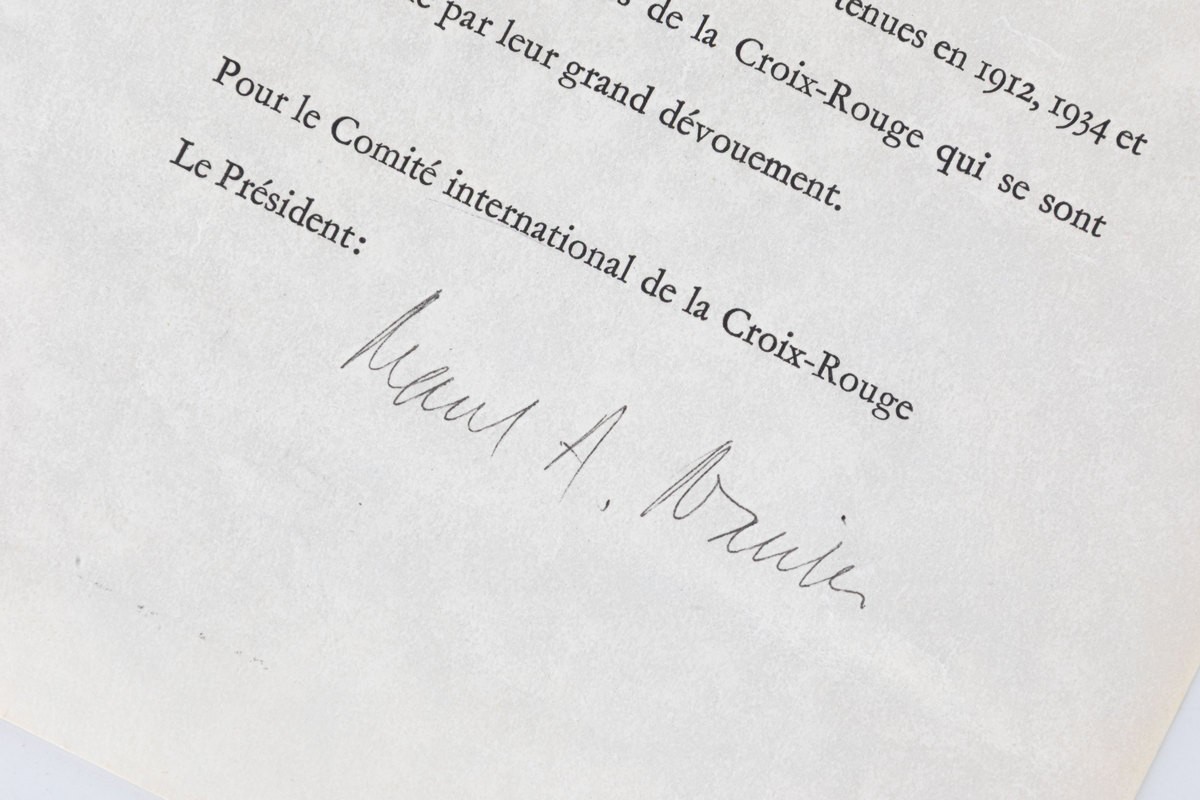 tenues en 1912, 1934 et
de la Croix-Rouge qui se sont
par leur grand dévouement.
Pour le Comité international de la Croix-Rouge
Le Président:
A.